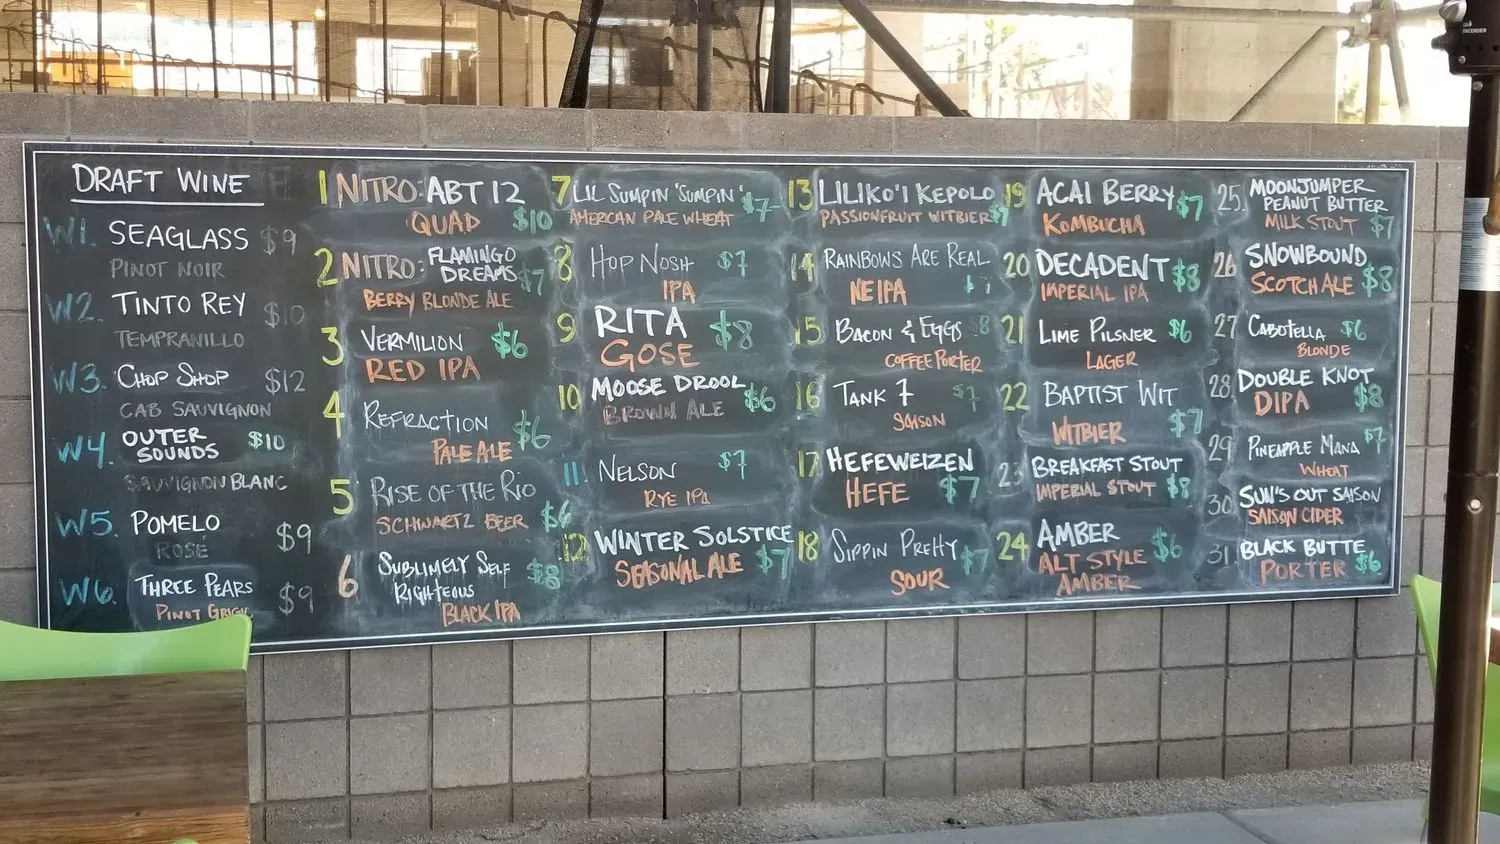 DRAFT WINE
W1. SEAGLASS $9
PINOT NOIR
W2. TINTO REY $10
TEMPRANILLO
W3. CHOP SHOP $12
CAB SAUVIGNON
W4. OUTER SOUNDS $10
SAUVIGNON BLANC
W5. POMELO $9
ROSÉ
W6. THREE PEARS $9
PINOT GRIGIO
1 NITRO: ABT 12
QUAD $10
2 NITRO: FLAMINGO
DREAMS $7
BERRY BLONDE ALE
3 VERMILION $6
RED IPA
4 REFRACTION $6
PALE ALE
5 RISE OF THE RIO
SCHWARTZ BEER $6
6 SUBLIMELY SELF
RIGHTEOUS $8
BLACK IPA
7 LIL SUMPIN 'SUMPIN' $7
AMERICAN PALE WHEAT
8 HOP NOSH $7
IPA
9 RITA $8
GOSE
10 MOOSE DROOL $6
BROWN ALE
11. NELSON $7
RYE IPA
12 WINTER SOLSTICE
SEASONAL ALE $7
13 LILIKO'I KEPOLO
PASSIONFRUIT WITBIER $7
14 RAINBOWS ARE REAL
NEIPA
15 BACON & EGGS $8
COFFEE PORTER
16 TANK 7
SAISON
17 HEFEWEIZEN
HEFE $7
18 SIPPIN PRETTY $7
SOUR
19 ACAI BERRY $7
KOMBUCHA
20 DECADENT $8
IMPERIAL IPA
21 LIME PILSNER $6
LAGER
22 BAPTIST WIT
WITBIER $7
23 BREAKFAST STOUT
IMPERIAL STOUT $8
24 AMBER $6
ALT STYLE
AMBER
25. MOONJUMPER
PEANUT BUTTER
MILK STOUT $7
26 SNOWBOUND
SCOTCH ALE $8
27 CABOTELLA $6
BLONDE
28. DOUBLE KNOT
DIPA $8
29 PINEAPPLE MANA $7
WHEAT
30 SUN'S OUT SAISON
SAISON CIDER
31. BLACK BUTTE
PORTER $6